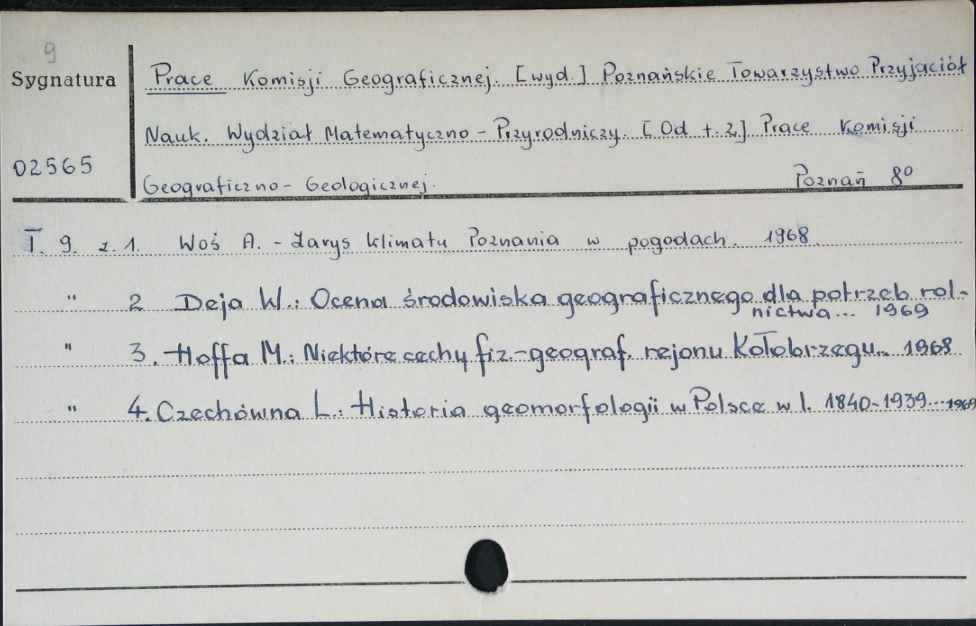 9
Sygnatura
Prace Komisji Geograficznej. [wyd.] Poznańskie Towarzystwo Przyjaciół
Nauk. Wydział Matematyczno - Przyrodniczy. [Od t. 2] Prace Komisji
02565
Geograficzno - Geologicznej. Poznań 8º
T. 9. z. 1. Woś A. - Zarys klimatu Poznania w pogodach. 1968.
" 2 Deja W.: Ocena środowiska geograficznego dla potrzeb rol-
nictwa... 1969
" 3. Hoffa M.: Niektóre cechy fiz-geograf. rejonu Kołobrzegu... 1968
" 4. Czechówna L.: Historia geomorfologii w Polsce w l. 1840-1939... 1969